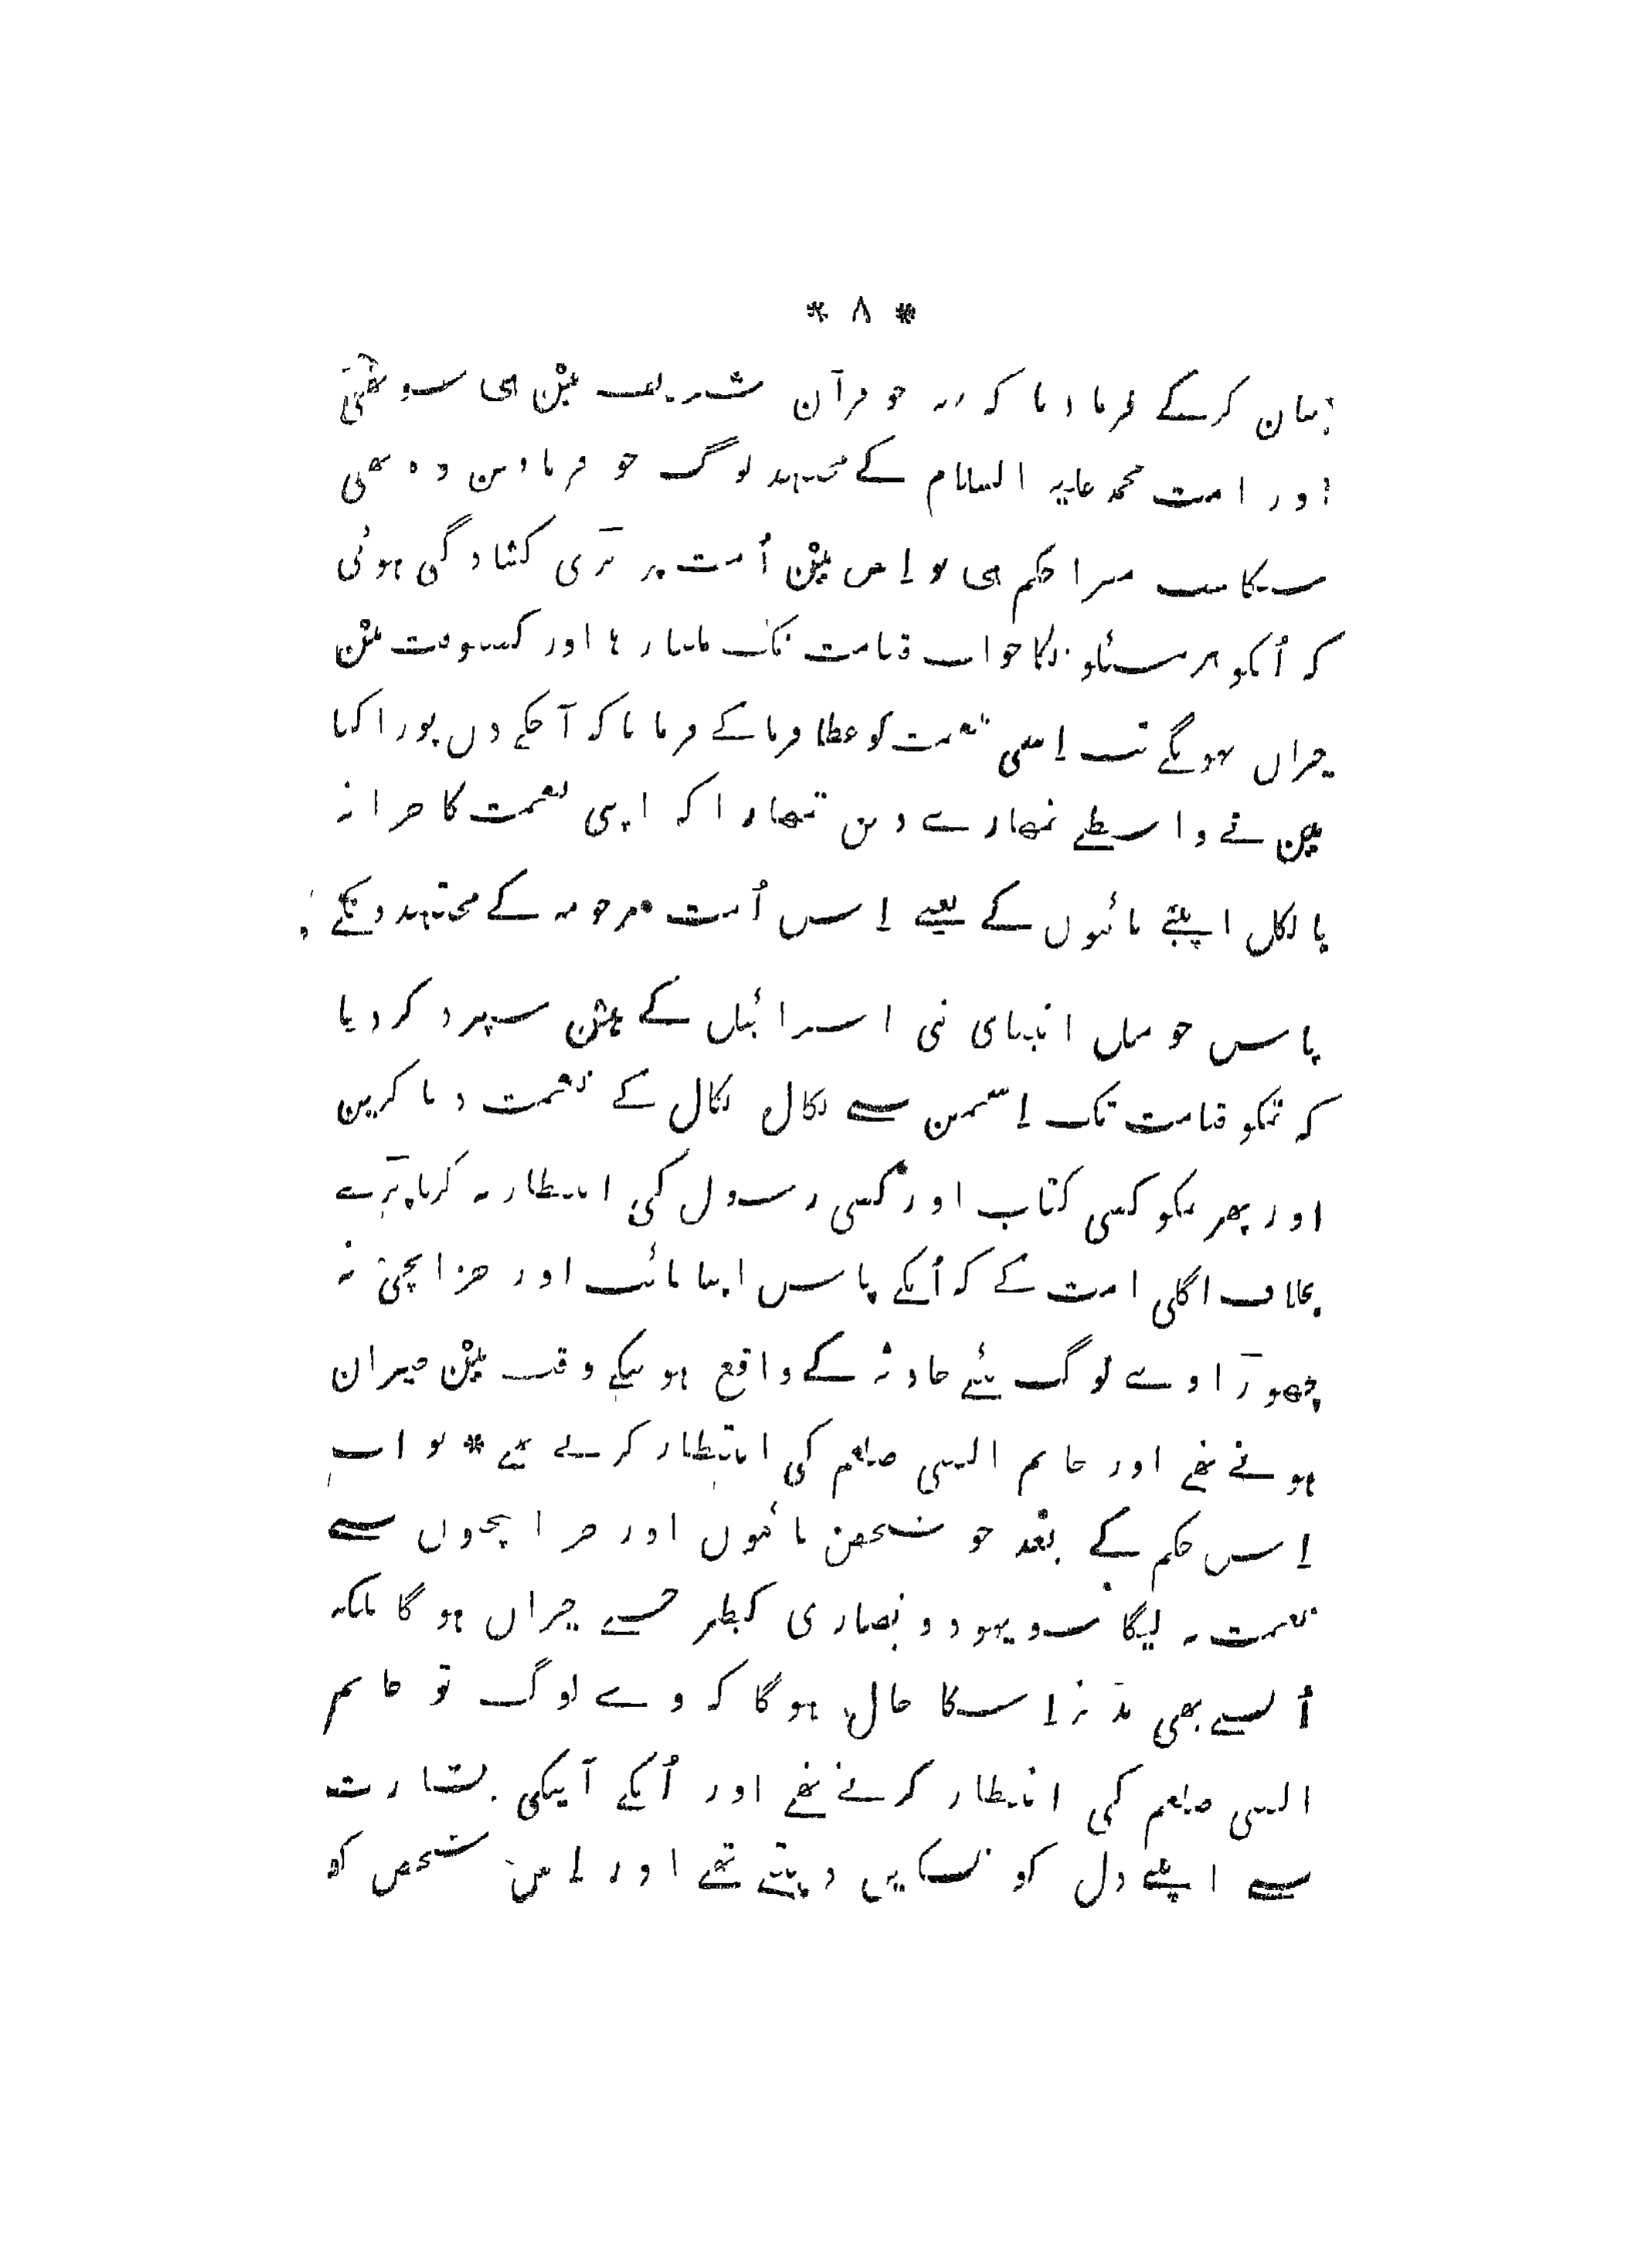 * ۸ *
بیان کرکے فرما دیا کہ یہ جو قرآن شریف مین ہی سو بھی
اور امت محمد علیہ السلام کے مجتہد لوگ جو فرماوین وہ بھی
سبکا سب میرا حکم ہی تو اِس مین اُمت پر بڑی کشادگی ہوئی
کہ اُنکو ہر مسئلونکا جواب قیامت تک ملتا رہا اور کسوقت مین
حیران نہونگے تب اِسی نعمت کو عطا فرما کے فرمایا کہ آجکے دن پورا کیا
مین نے واسطے تمھارے دین تمھارا کہ اپنی نعمت کا خزانہ
بالکل اپنے نائبوں کے لیے اِس اُمت مرحومہ کے مجتہدونکے
پاس جو مثل انبیای بنی اسرائیل کے ہین سپرد کر دیا
کہ تمکو قیامت تک اِسمین سے نکال نکال کے نعمت دیا کرین
اور پھر تمکو کسی کتاب اور کسی رسول کی انتظار نہ کرنا پڑے
بخلاف اگلی امت کے کہ اُنکے پاس اپنا نائب اور خزانچی نہ
چھوڑا وے لوگ نئے حادثہ کے واقع ہونیکے وقت مین حیران
ہوتے تھے اور خاتم النبی صلعم کی انتظار کرتے تھے * تو اب
اِس حکم کے بعد جو شخص نائبوں اور خزانچیوں سے
نعمت نہ لیگا سو یہود و نصاری کیطرحسے حیران ہوگا بلکہ
اُنسے بھی بدتر اِسکا حال ہوگا کہ وے لوگ تو خاتم
النبی صلعم کی انتظار کرتے تھے اور اُنکے آنیکی بشارت
سے اپنے دل کو تسکین دیتے تھے اور اِس شخص کو